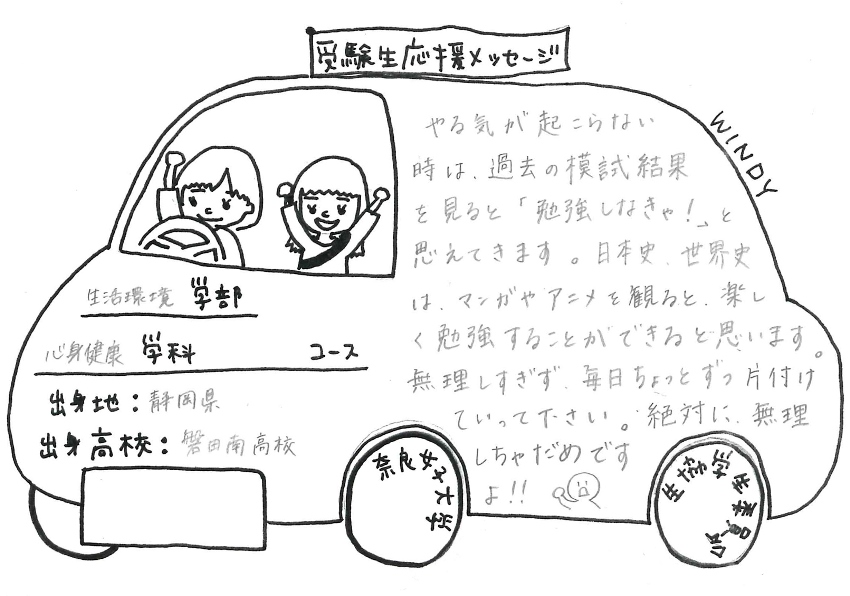 受験生応援メッセージ
WINDY
やる気が起こらない
時は、過去の模試結果
を見ると「勉強しなきゃ!」と
思えてきます。日本史、世界史
は、マンガやアニメを観ると、楽し
く勉強することができると思います。
無理しすぎず、毎日ちょっとずつ片付け
ていって下さい。絶対に、無理
しちゃだめです
よ!!
生活環境 学部
心身健康 学科 コース
出身地:静岡県
出身高校:磐田南高校
奈良女子大学
生協学生委員会